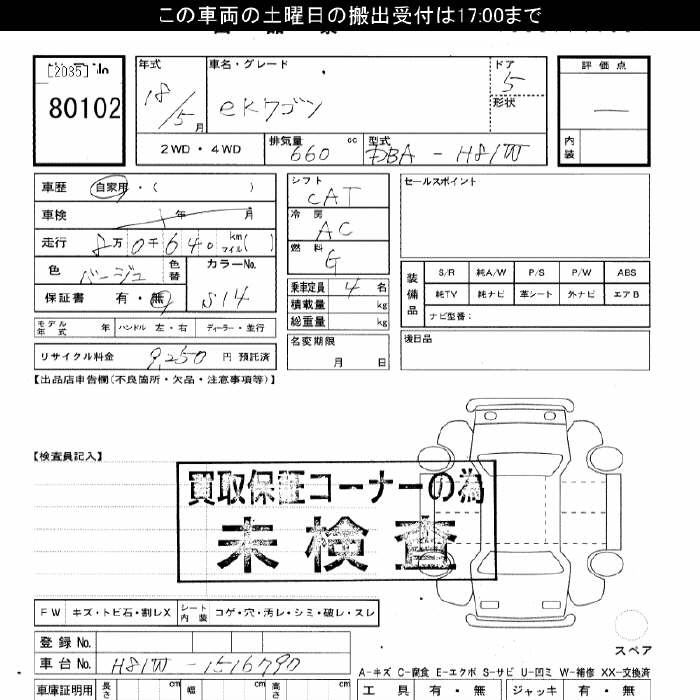 この車両の土曜日の搬出受付は17:00まで
[2035] No
80102
年式 18/5月
車名・グレード eKワゴン
ドア 5
形状
評価点 —
内装
2WD・4WD
排気量 660 cc
型式 DBA-H81W
車歴 自家用・( )
車検 年 月
走行 8万0千640 km マイル( )
色 ベージュ 色替
カラーNo. S14
保証書 有・無
モデル年式 年 ハンドル 左・右 ディーラー・並行
リサイクル料金 9,250 円 預託済
シフト CAT
冷房 AC
燃料 G
乗車定員 4 名
積載量 kg
総重量 kg
名変期限 月 日
セールスポイント
装備品
S/R 純A/W P/S P/W ABS
純TV 純ナビ 革シート 外ナビ エアB
ナビ型番：
後日品
【出品店申告欄(不良箇所・欠品・注意事項等)】
【検査員記入】
買取保証コーナーの為
未検査
FW キズ・トビ石・割レX シート内装 コゲ・穴・汚レ・シミ・破レ・スレ
スペア
登録 No.
車台 No. H81W-1516790
A-キズ C-腐食 E-エクボ S-サビ U-凹ミ W-補修 XX-交換済
車庫証明用 長さ cm 幅 cm 高さ cm
工具 有・無 ジャッキ 有・無